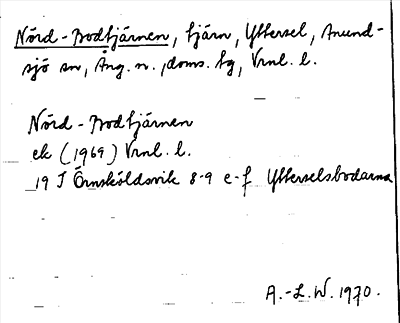 Nörd-Bodtjärnen, tjärn, Yttersel, Anund-
sjö sn, Ång. n., doms. tg, Vrnl. l.
Nörd-Bodtjärnen
ek (1969) Vrnl. l.
19 J Örnsköldsvik 8-9 e-f Ytterselsbodarna
A.-L.W. 1970.